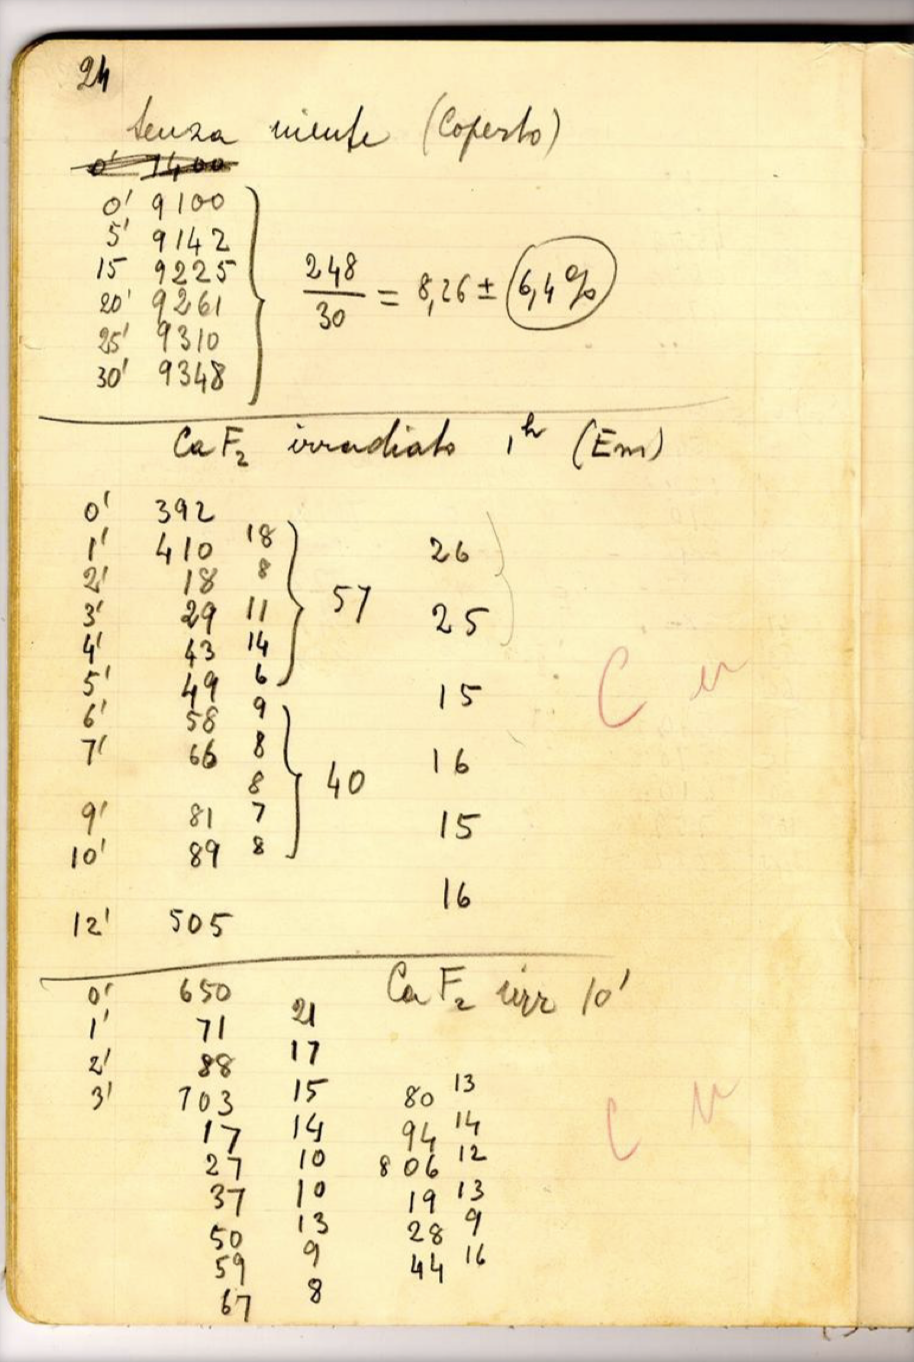 24
senza niente (Coperto)
0' 1400
0' 9100
5' 9142
15 9225
20' 9261
25' 9310
30' 9348
248/30 = 8,26 ± 6,4%
CaF2 irradiato 1h (Em)
0' 392
1' 410 18
2' 18 8
3' 29 11
4' 43 14
5' 49 6
57
6' 58 9
7' 66 8
8
9' 81 7
10' 89 8
40
12' 505
26
25
15
16
15
16
CaF2 irr 10'
0' 650
1' 71 21
2' 88 17
3' 703 15
17 14
27 10
37 10
50 13
59 9
67 8
80 13
94 14
806 12
19 13
28 9
44 16